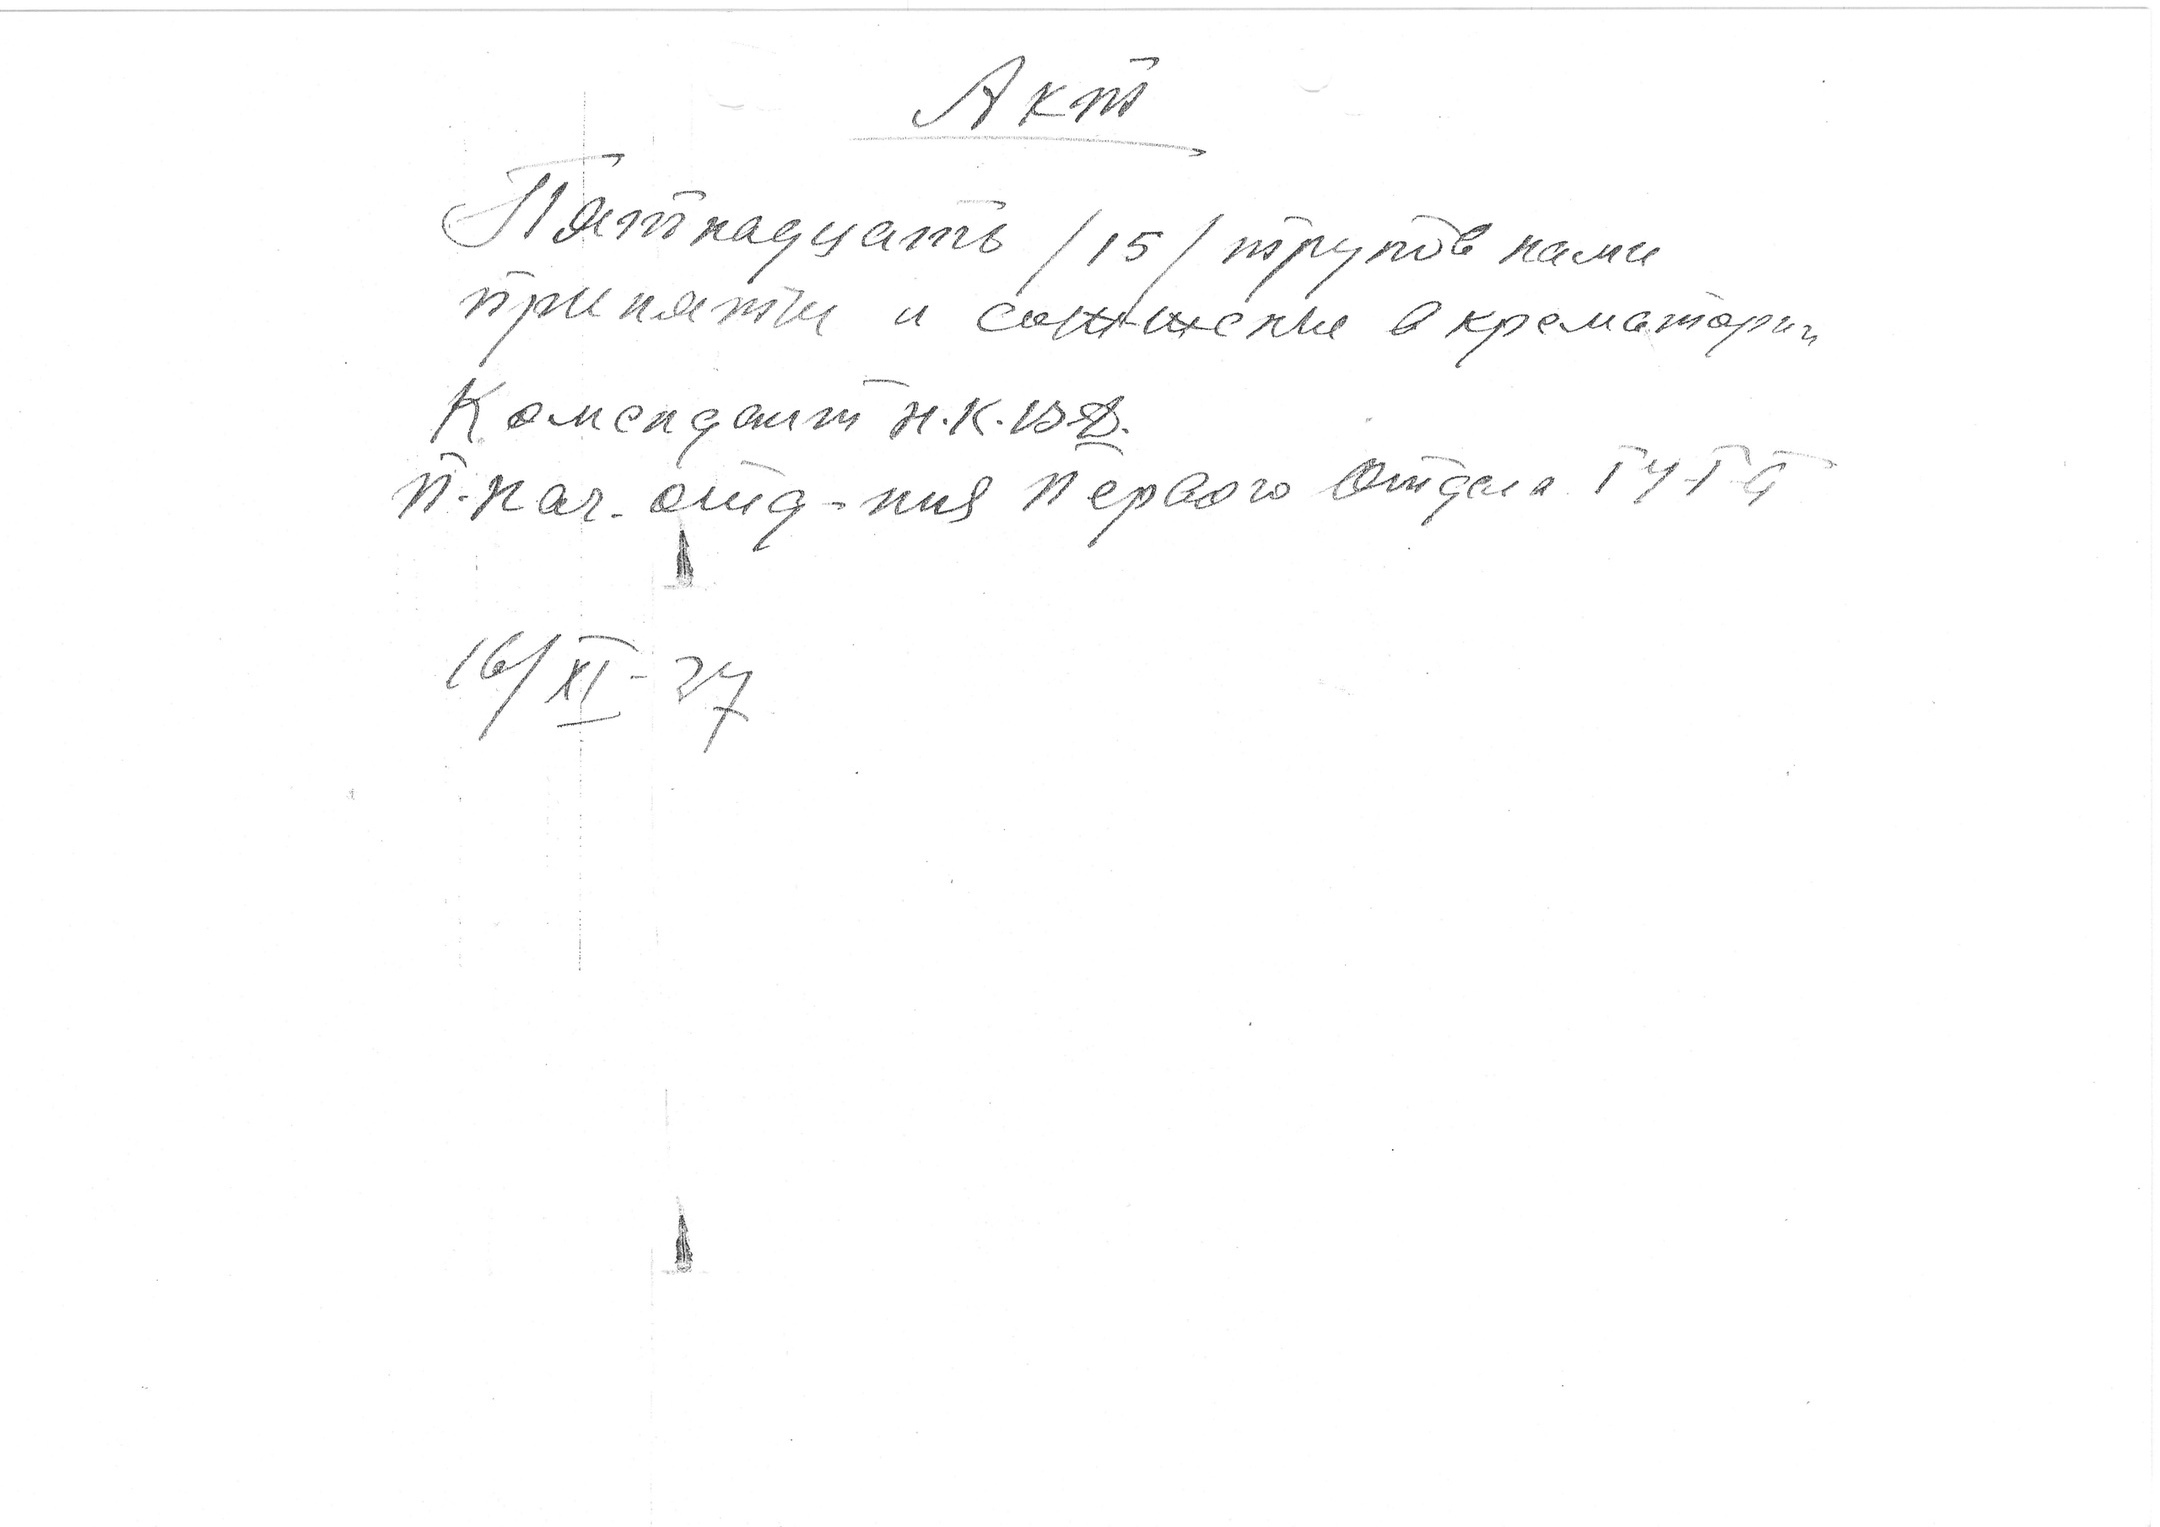 Акт
Пятнадцать /15/ трупов нами
приняты и сожжены в крематории
Комендант Н.К.В.Д.
П.Нач. отд-ния Первого Отдела ГУГБ
16/XI-37